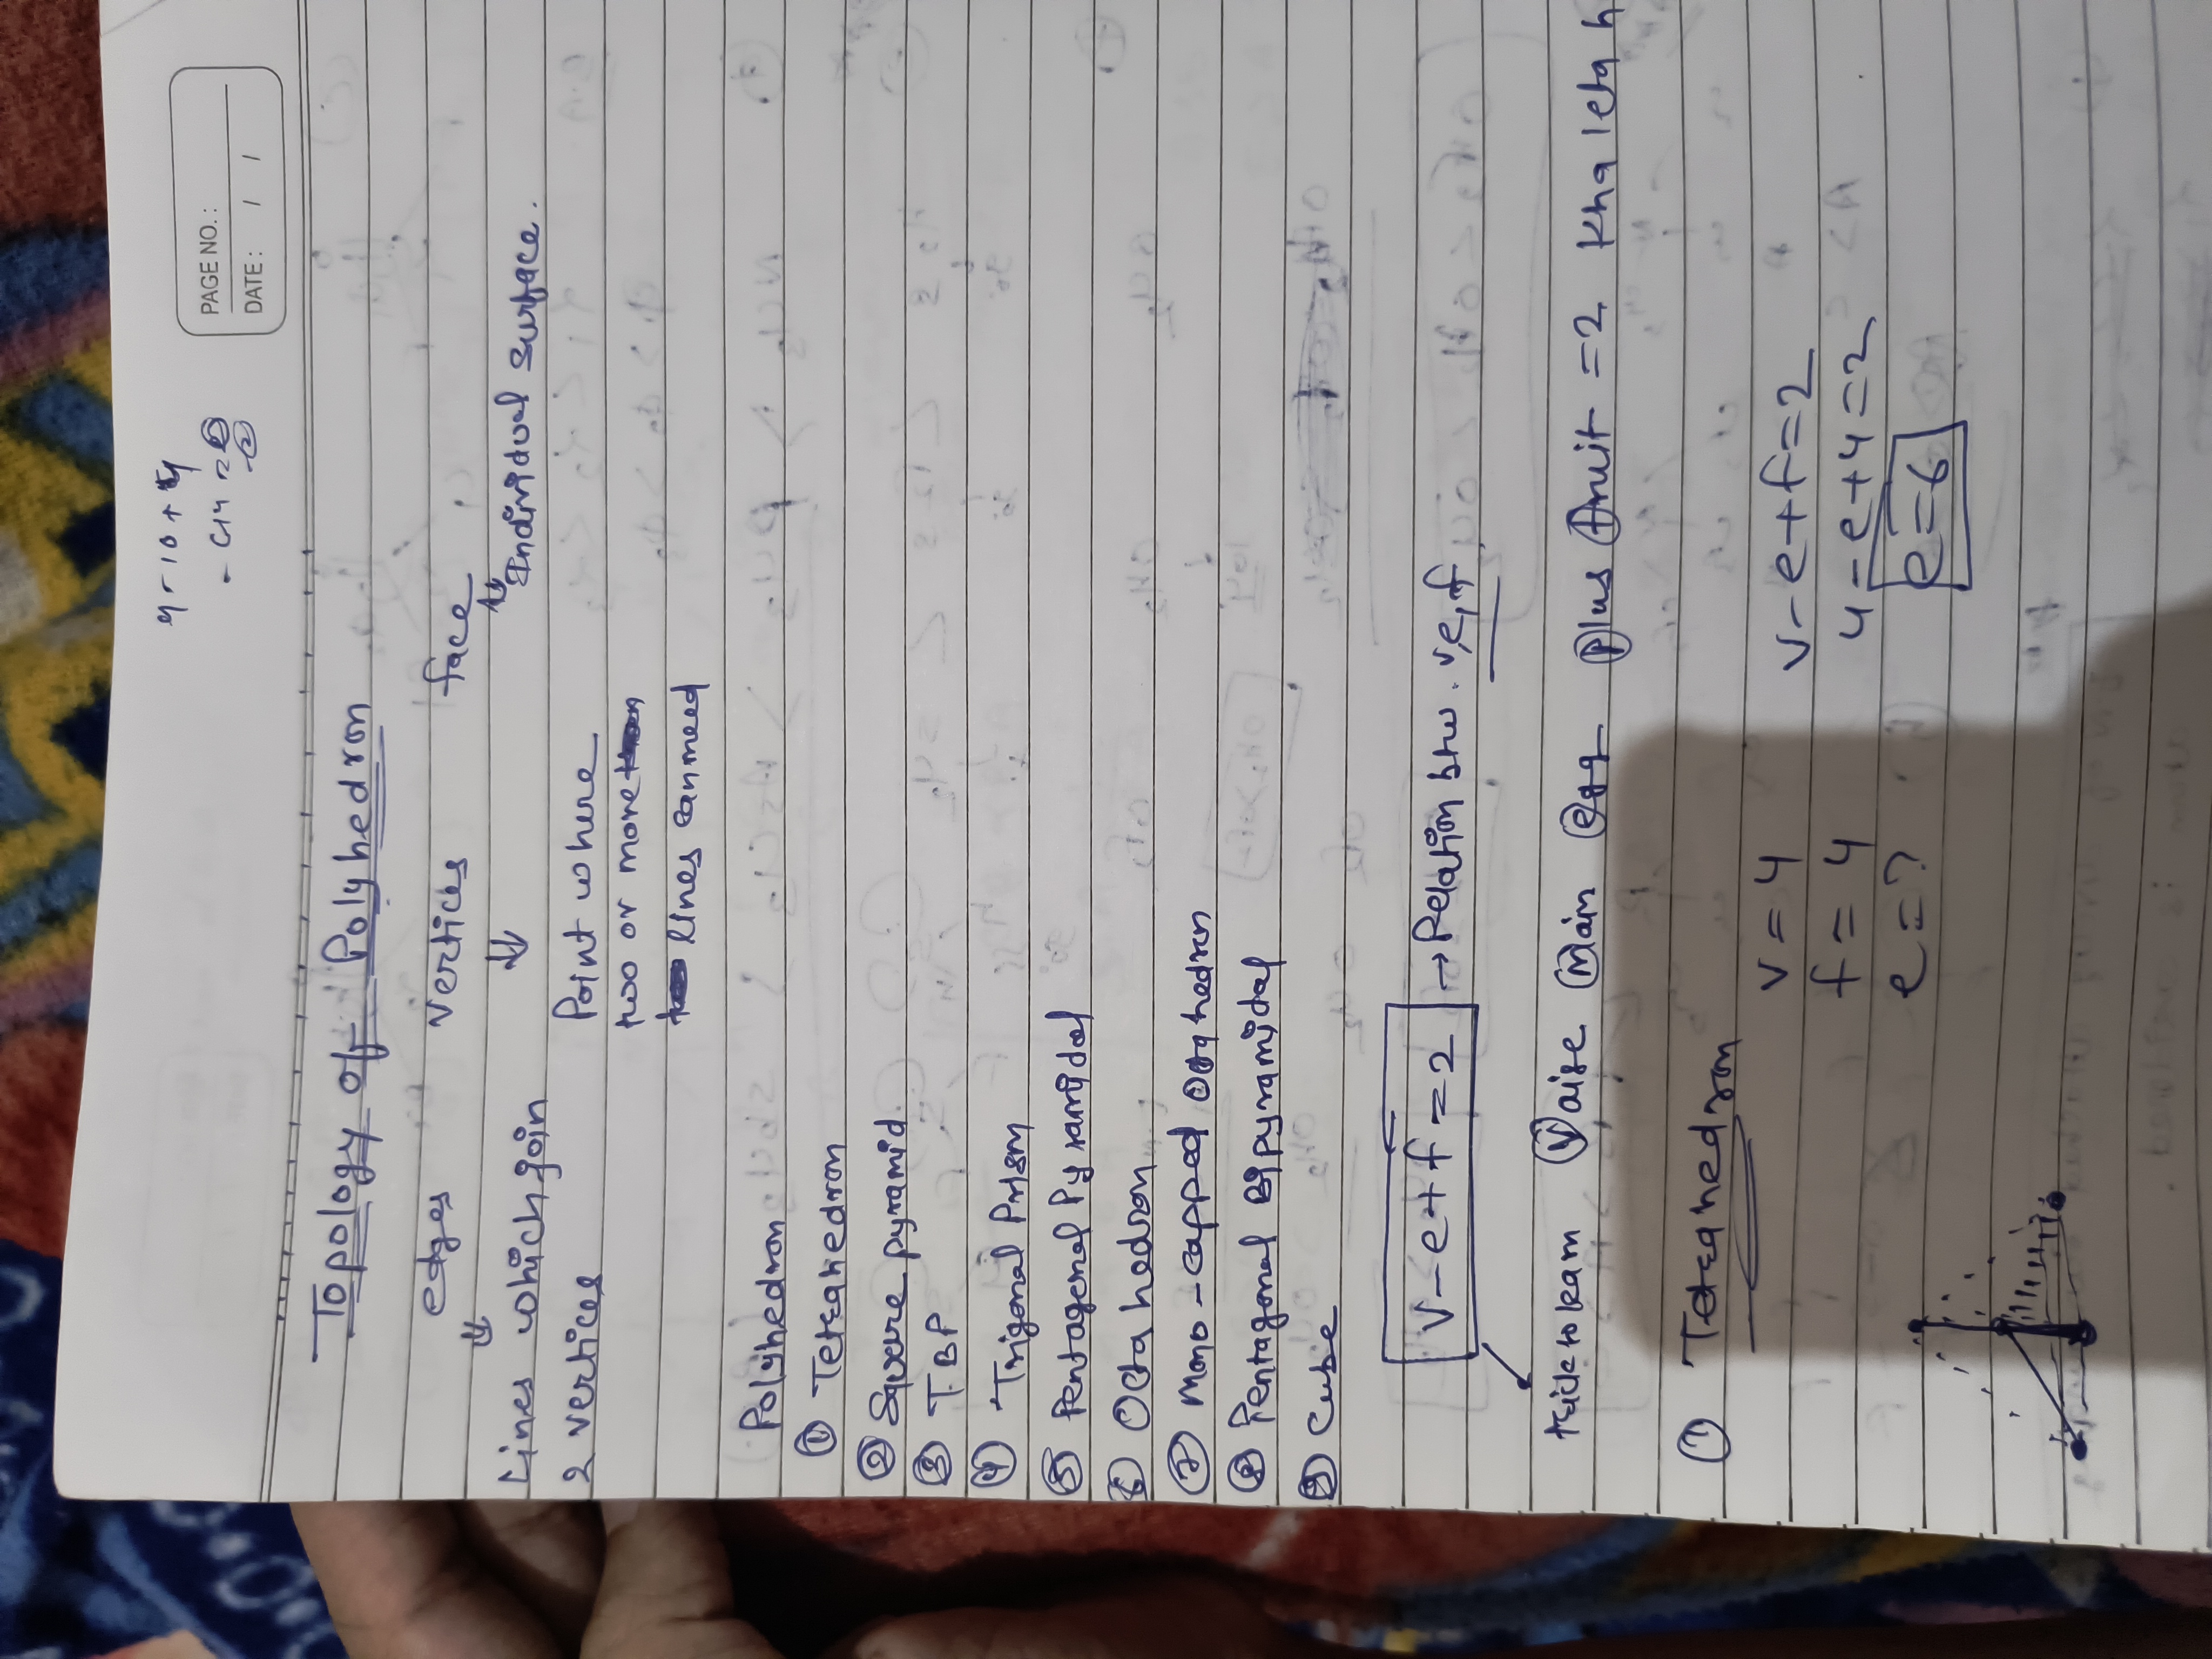 PAGE NO.:
DATE: / /
Topology of Polyhedron
edges vertices face
Lines which join Point where Individual surface.
2 vertices two or more
lines can meet
Polyhedron
① Tetrahedron
② Square pyramid
③ T.B.P
④ Trigonal Prism
⑤ Pentagonal Pyramidal
⑥ Octahedron
⑦ Mono-capped Octahedron
⑧ Pentagonal Bipyramidal
⑨ Cube
V-e+f=2 → Relation btw. v,e,f
trick to learn Vaise Main egg Plus fruit =2 kha leta h
① Tetrahedron
v=4 v-e+f=2
f=4 4-e+4=2
e=? e=6